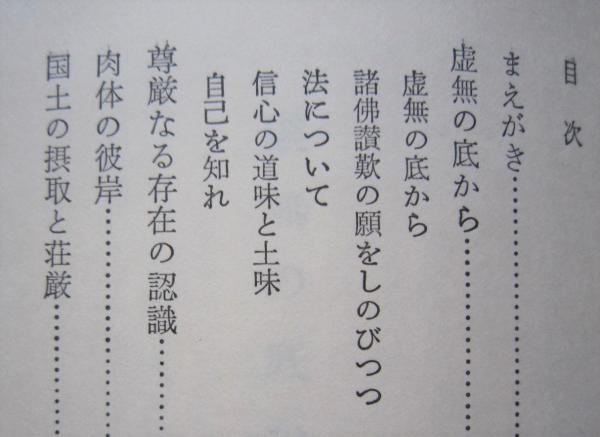 目次
まえがき…………………
虚無の底から…………………
虚無の底から
諸佛讃歎の願をしのびつつ
法について
信心の道味と土味
自己を知れ
尊厳なる存在の認識…………
肉体の彼岸…………………
国土の摂取と荘厳……………